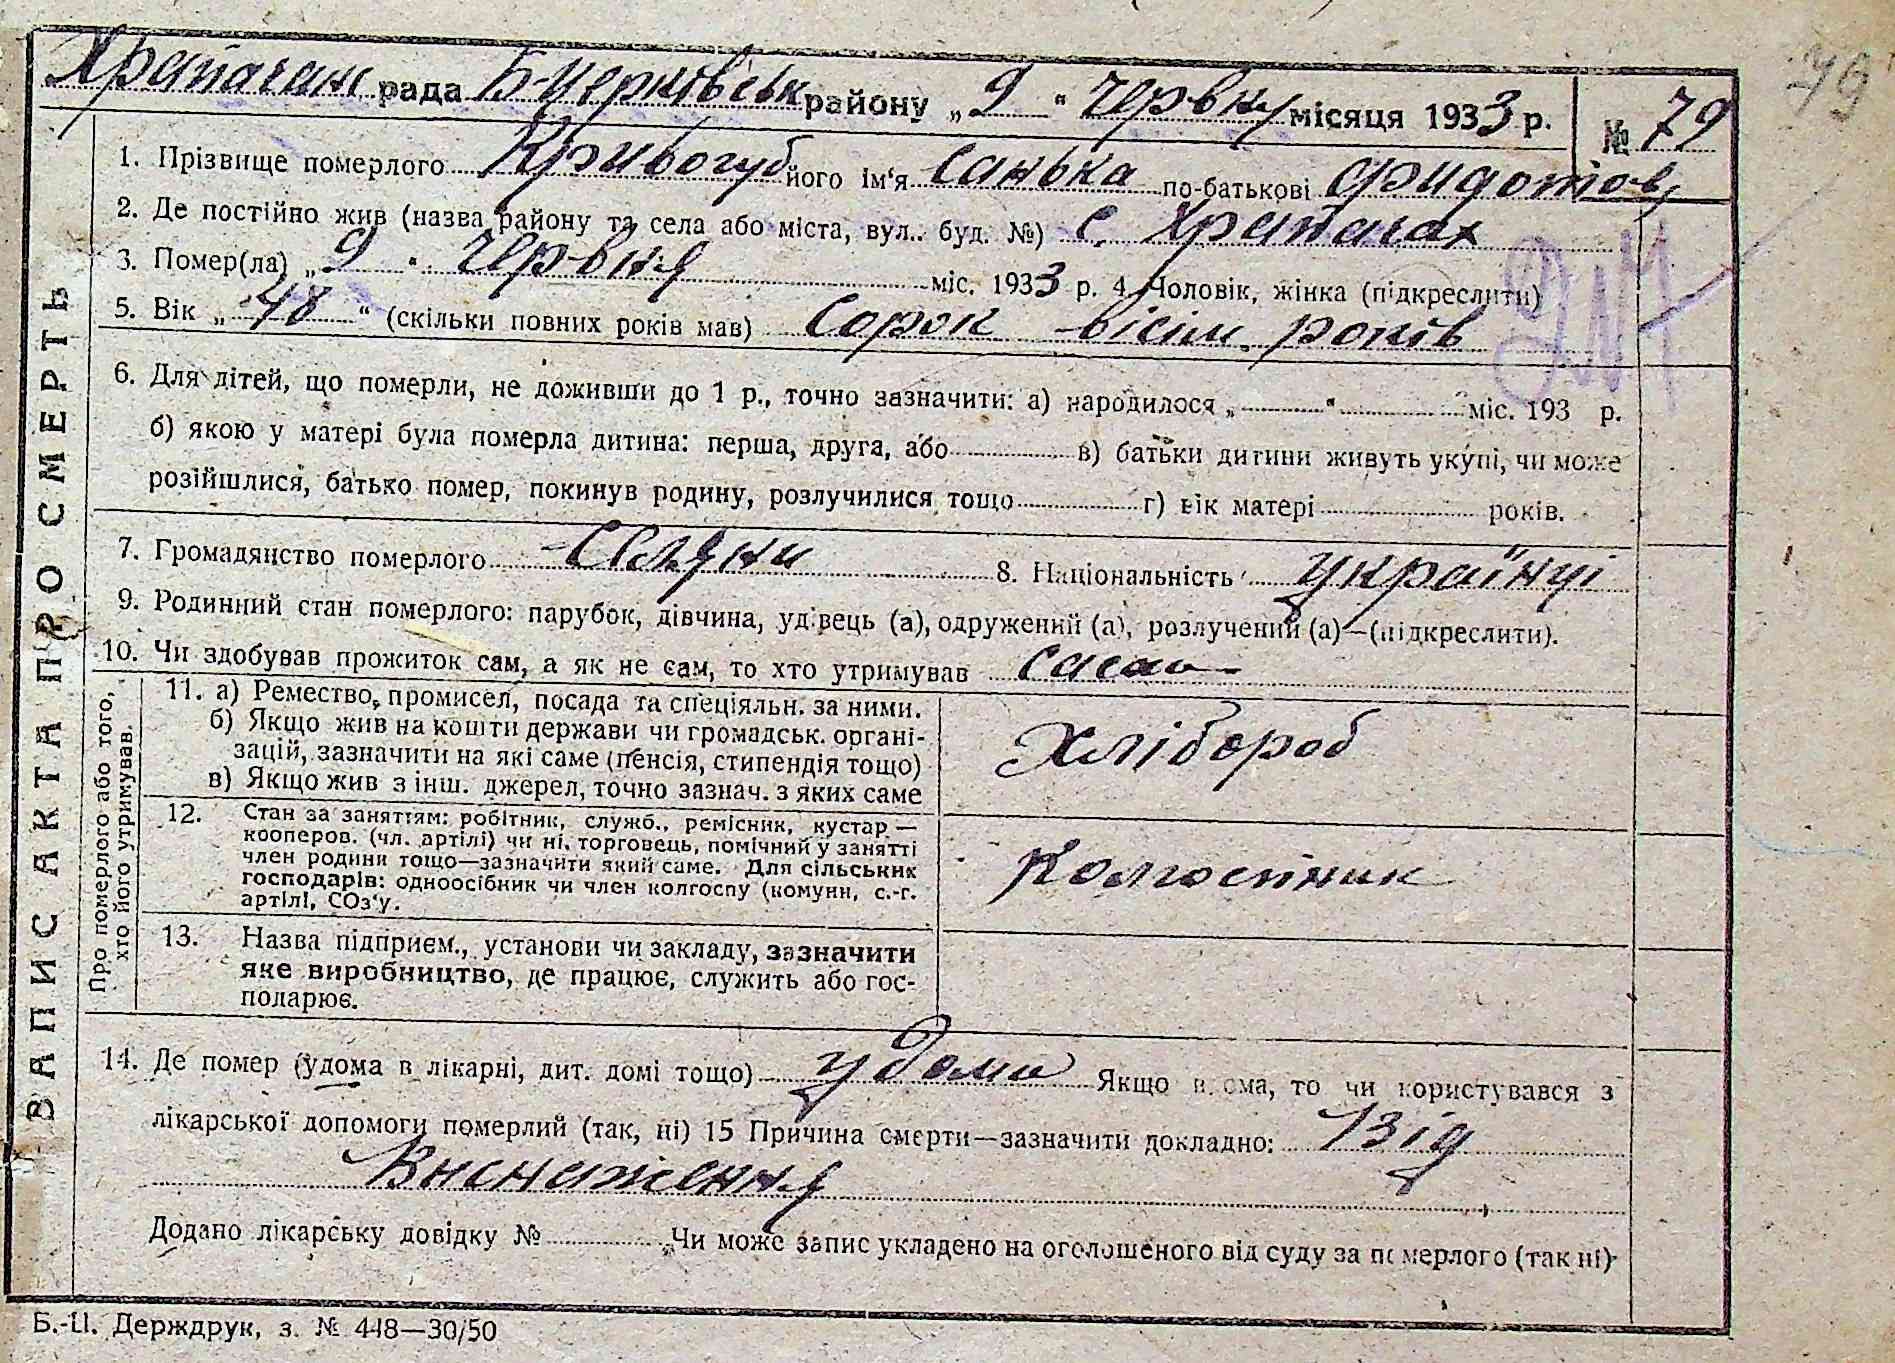 79
Храпачан рада Б-Церківськ району „ 9 “ червня місяця 1933 р. № 79
1. Прізвище померлого Кривогуб його ім'я Санька по-батькові
2. Де постійно жив (назва району та села або міста, вул.. буд. №) с. Храпачах
3. Помер(ла) „ 9 “ червня міс. 1933 р. 4. Чоловік, жінка (підкреслити)
5. Вік „ 48 “ (скільки повних років мав) Сорок вісім років
6. Для дітей, що померли, не доживши до 1 р., точно зазначити: а) народилося „ “ міс. 193 р.
б) якою у матері була померла дитина: перша, друга, або в) батьки дитини живуть укупі, чи може
розійшлися, батько помер, покинув родину, розлучилися тощо г) вік матері років.
7. Громадянство померлого Селяни 8. Національність українці
9. Родинний стан померлого: парубок, дівчина, удівець (а), одружений (а), розлучений (а)—(підкреслити).
10. Чи здобував прожиток сам, а як не сам, то хто утримував
11. а) Ремество, промисел, посада та спеціяльн. за ними.
б) Якщо жив на кошти держави чи громадськ. органі-
зацій, зазначити на які саме (пенсія, стипендія тощо)
в) Якщо жив з інш. джерел, точно зазнач. з яких саме
Хлібороб
12. Стан за заняттям: робітник, служб., ремісник, кустар —
кооперов. (чл. артілі) чи ні, торговець, помічний у занятті
член родини тощо—зазначити який саме. Для сільських
господарів: одноосібник чи член колгоспу (комуни, с.-г.
артілі, СОз'у.
Колгоспник
13. Назва підприєм., установи чи закладу, зазначити
яке виробництво, де працює, служить або гос-
подарює.
14. Де помер (удома в лікарні, дит. домі тощо) удома Якщо вдома, то чи користувався з
лікарської допомоги померлий (так, ні) 15 Причина смерти—зазначити докладно: Ізвід
Виснаження
Додано лікарську довідку № Чи може запис укладено на оголошеного від суду за померлого (так ні)
Б.-Ц. Держдрук, з. № 448—30/50
ЗАПИС АКТА ПРО СМЕРТЬ
Про померлого або того,
хто його утримував.